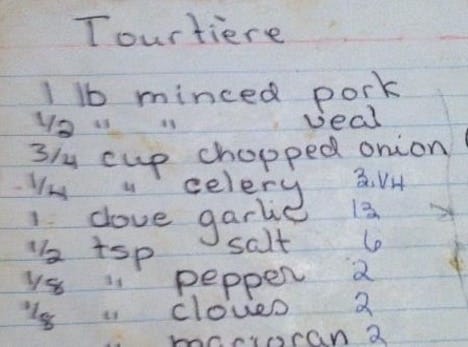 Tourtière
1 lb minced pork
1/2 " " veal
3/4 cup chopped onion
1/4 " celery 3.1/4
1 clove garlic 12
1/2 tsp salt 6
1/8 " pepper 2
1/8 " cloves 2
" marjoran 2